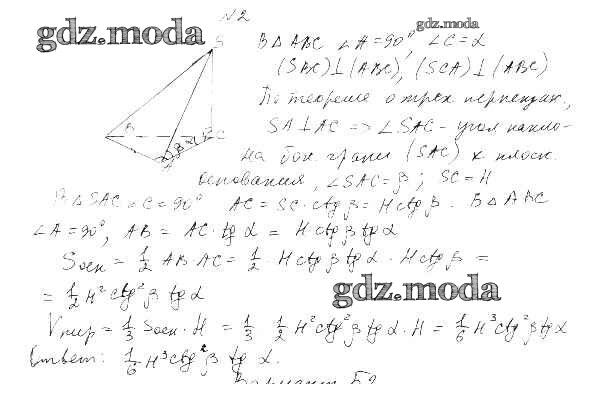 N2
gdz.moda
gdz.moda
S
В Δ ABC ∠A = 90°, ∠C = α
(SBC) ⊥ (ABC), (SCA) ⊥ (ABC)
По теореме о трех перпендик.,
SA ⊥ AC => ∠SAC - угол накло-
B C
на бок. грани (SAC) к плоск.
основания, ∠SAC = β; SC = H
В Δ SAC ∠C = 90° AC = SC · ctg β = H ctg β. В Δ ABC
∠A = 90°, AB = AC · tg α = H ctg β tg α
Sосн = 1/2 AB · AC = 1/2 · H ctg β tg α · H ctg β =
= 1/2 H² ctg² β tg α
gdz.moda
Vпир = 1/3 Sосн · H = 1/3 1/2 H² ctg² β tg α · H = 1/6 H³ ctg² β tg α
Ответ: 1/6 H³ ctg² β tg α.
Вариант Б2